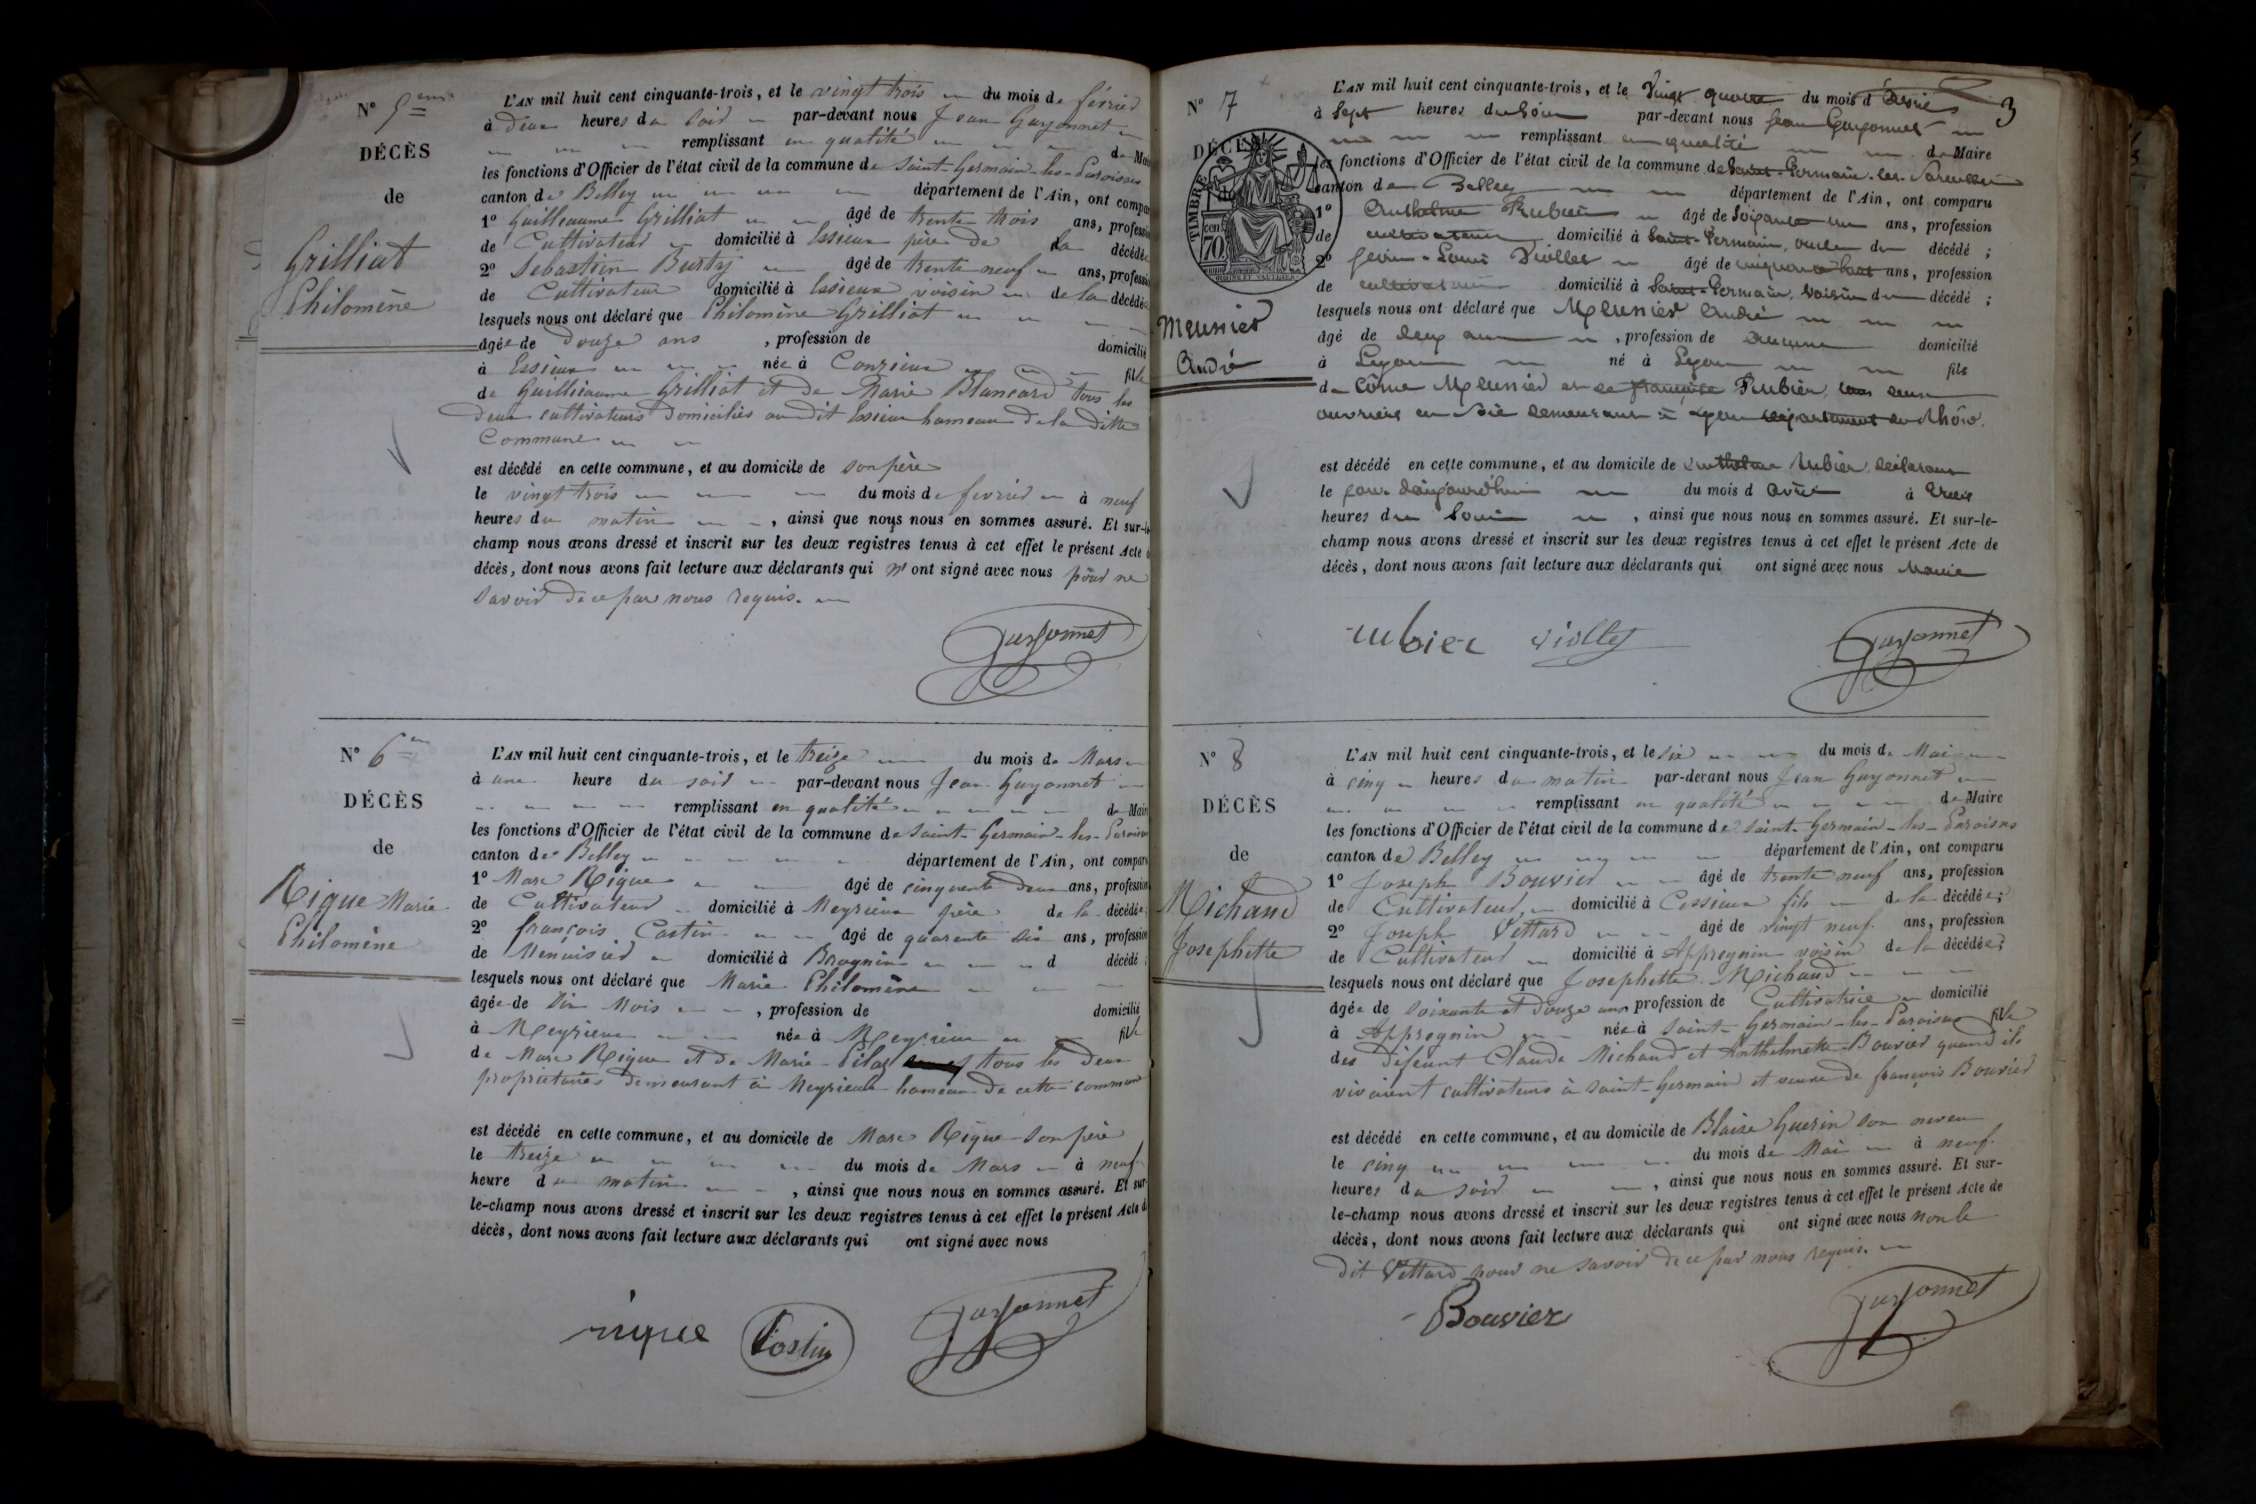 N° 5
DÉCÈS
de
Grilliat
Philomène
L'AN mil huit cent cinquante-trois, et le vingt trois du mois de février
à deux heures du soir par-devant nous Jean Guyonnet
remplissant en qualité de Mai
les fonctions d'Officier de l'état civil de la commune de Saint-Germain-les-Paroisses
canton de Belley département de l'Ain, ont compar
1° Guilleaume Grilliat âgé de trente trois ans, professi
de Cultivateur domicilié à Essieux père de la décédée
2° Sebastien Burty âgé de trente neuf ans, professi
de Cultivateur domicilié à Essieux voisin de la décédée
lesquels nous ont déclaré que Philomène Grilliat
âgée de douze ans, profession de domicilié
à Essieux née à Conzieux fille
de Guilleaume Grilliat et de Marie Blancard tous les
deux cultivateurs domiciliés au dit Essieux hameau de la ditte
Commune
est décédé en cette commune, et au domicile de son père
le vingt trois du mois de fevrier à neuf
heures du matin, ainsi que nous nous en sommes assuré. Et sur-le
champ nous avons dressé et inscrit sur les deux registres tenus à cet effet le présent Acte
décès, dont nous avons fait lecture aux déclarants qui n'ont signé avec nous pour ne
savoir de ce par nous requis.
Guyonnet
N° 6
DÉCÈS
de
Rique Marie
Philomène
L'AN mil huit cent cinquante-trois, et le treize du mois de Mars
à une heure du soir par-devant nous Jean Guyonnet
remplissant en qualité de Mair
les fonctions d'Officier de l'état civil de la commune de Saint-Germain-les-Paroiss
canton de Belley département de l'Ain, ont comparu
1° Marc Rique âgé de cinquante deux ans, profession
de Cultivateur domicilié à Meyrieux père de la décédée
2° françois Costin âgé de quarante six ans, profession
de Menuisier domicilié à Brognin d décédé ;
lesquels nous ont déclaré que Marie Philomène
âgée de dix mois, profession de domicilié
à Meyrieux née à Meyrieux fille
de Marc Rique et de Marie Pilaz tous les deux
propriétaires demeurant à Meyrieux hameau de cette commune
est décédé en cette commune, et au domicile de Marc Rique son père
le treize du mois de Mars à neuf
heure du matin, ainsi que nous nous en sommes assuré. Et sur
le-champ nous avons dressé et inscrit sur les deux registres tenus à cet effet le présent Acte d
décès, dont nous avons fait lecture aux déclarants qui ont signé avec nous
rique Costin Guyonnet
3
N° 7
DÉCÈS
TIMBRE
70
Meunier
André
L'AN mil huit cent cinquante-trois, et le Vingt quatre du mois d'Avril
à Sept heures du Soir par-devant nous Jean Guyonnet
remplissant en qualité de Maire
les fonctions d'Officier de l'état civil de la commune de Saint-Germain-les-Paroisses
canton de Belley département de l'Ain, ont comparu
1° Anthelme Rubier âgé de Soixante un ans, profession
de cultivateur domicilié à Saint-Germain, oncle du décédé ;
2° Louis Viollet âgé de cinquante huit ans, profession
de cultivateur domicilié à Saint-Germain, Voisin du décédé ;
lesquels nous ont déclaré que Meunier André
âgé de deux ans, profession de aucune domicilié
à Lyon né à Lyon fils
de Côme Meunier et de françoise Rubier, tous deux
ouvriers en Soie demeurant à Lyon département du Rhône.
est décédé en cette commune, et au domicile de Anthelme Rubier, déclarant
le jour d'aujourd'hui du mois d avril à trois
heures du Soir, ainsi que nous nous en sommes assuré. Et sur-le-
champ nous avons dressé et inscrit sur les deux registres tenus à cet effet le présent Acte de
décès, dont nous avons fait lecture aux déclarants qui ont signé avec nous Maire
rubier viollet Guyonnet
N° 8
DÉCÈS
de
Michaud
Josephette
L'AN mil huit cent cinquante-trois, et le six du mois de Mai
à cinq heures du matin par-devant nous Jean Guyonnet
remplissant en qualité de Maire
les fonctions d'Officier de l'état civil de la commune de Saint-Germain-les-Paroisses
canton de Belley département de l'Ain, ont comparu
1° Joseph Bouvier âgé de trente neuf ans, profession
de Cultivateur, domicilié à Cessieux fils de la décédée ;
2° Joseph Vettard âgé de vingt neuf ans, profession
de Cultivateur domicilié à Appregnin voisin de la décédée ;
lesquels nous ont déclaré que Josephette Michaud
âgée de soixante et douze ans profession de Cultivatrice domicilié
à Appregnin née à Saint-Germain-les-Paroisses fille
des défeunt Claude Michaud et Anthelmette Bouvier quand ils
vivaient cultivateurs à Saint-Germain et veuve de françois Bouvier
est décédé en cette commune, et au domicile de Blaise Guerin son neveu
le cinq du mois de Mai à neuf
heures du soir, ainsi que nous nous en sommes assuré. Et sur-
le-champ nous avons dressé et inscrit sur les deux registres tenus à cet effet le présent Acte de
décès, dont nous avons fait lecture aux déclarants qui ont signé avec nous non le
dit Vettard pour ne savoir de ce par nous requis.
Bouvier Guyonnet